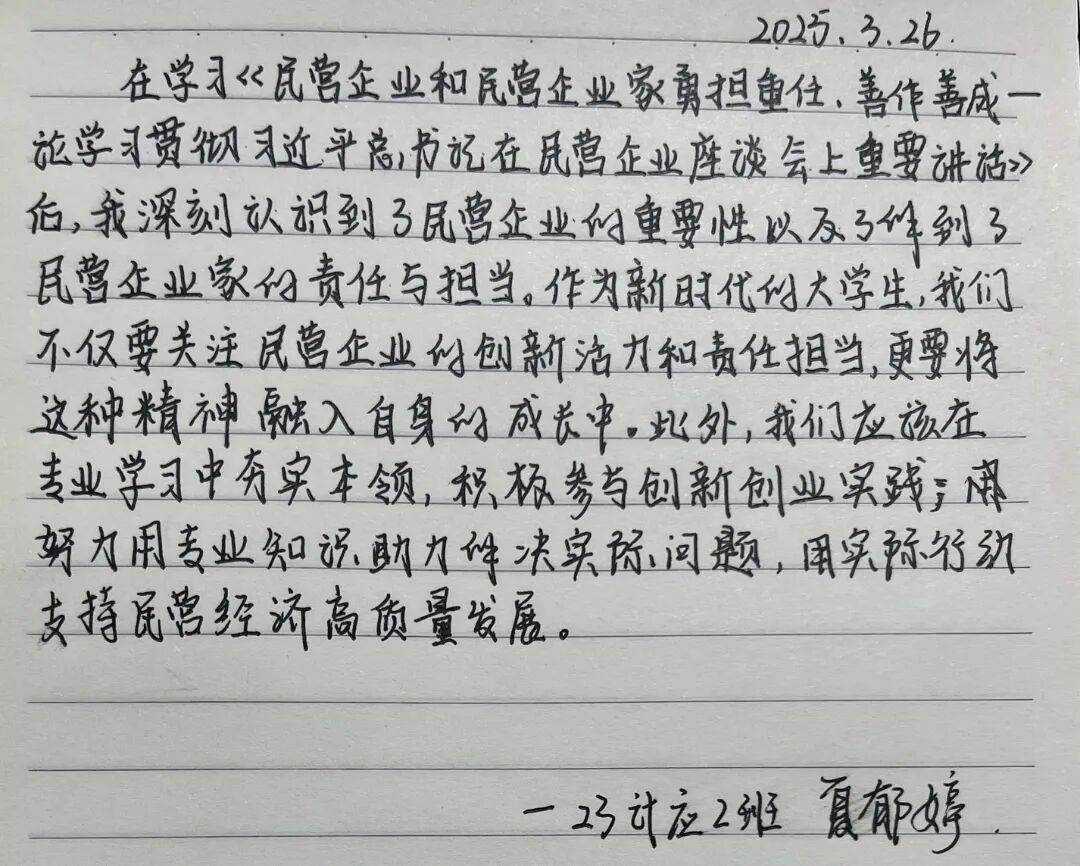 2025.3.26.
在学习《民营企业和民营企业家勇担重任、善作善成一
论学习贯彻习近平总书记在民营企业座谈会上重要讲话》
后,我深刻认识到了民营企业的重要性以及了解到了
民营企业家的责任与担当。作为新时代的大学生,我们
不仅要关注民营企业的创新活力和责任担当,更要将
这种精神融入自身的成长中。此外,我们应该在
专业学习中夯实本领,积极参与创新创业实践;
努力用专业知识助力解决实际问题,用实际行动
支持民营经济高质量发展。
一23计应2班 夏郁婷.